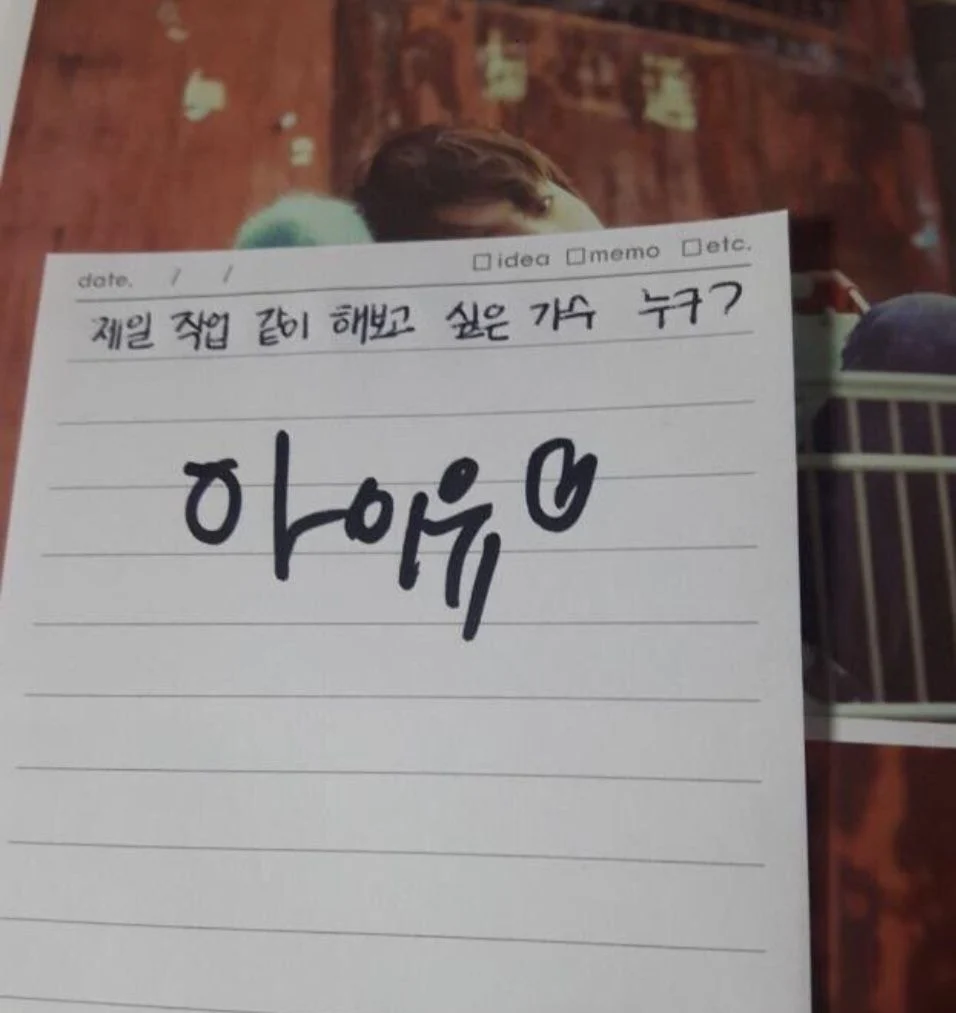 date. / / □idea □memo □etc.
제일 작업 같이 해보고 싶은 가수 누구?
아이유♡